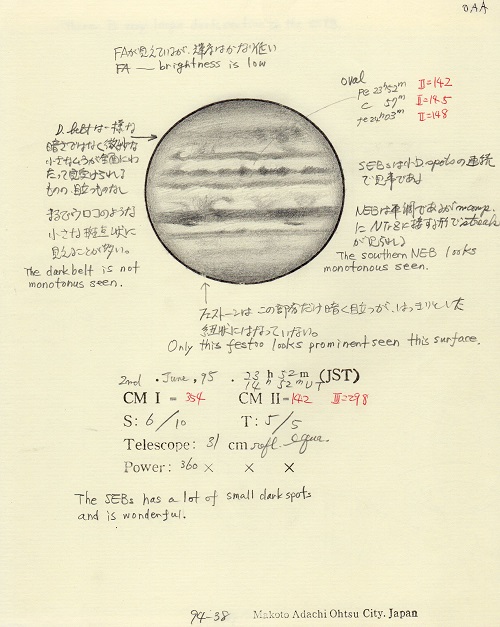 OAA
FAが見えているが、濃さはかなり低い
FA — brightness is low
oval
Pe 23h52m II=142
C 57m II=145
fe 24h03m II=148
D. beltは一様な
暗さではなく微小な
小さなムラが全面にわ
たって見受けられる
ものの、目立つものなし
まるでウロコのような
小さな斑点状に
見えることが多い。
The dark belt is not
monotonus seen.
SEBsは小D. spotsの連続
で見事である
NEBは単調であるが
に NTrZに接する形でstreak
が見られる
The southern NEB looks
monotonous seen.
フェストーンは この部分だけ暗く目立つが、はっきりとした
紐状にはなっていない。
Only this festoo looks prominent seen this surface.
2nd . June, 95 . 23 h 52 m (JST)
14 h 52 m UT
CM I = 354 CM II = 142 III=298
S: 6/10 T: 5/5
Telescope: 31 cm refl. equa.
Power: 360 × × ×
The SEBs has a lot of small dark spots
and is wonderful.
94-38 Makoto Adachi Ohtsu City. Japan